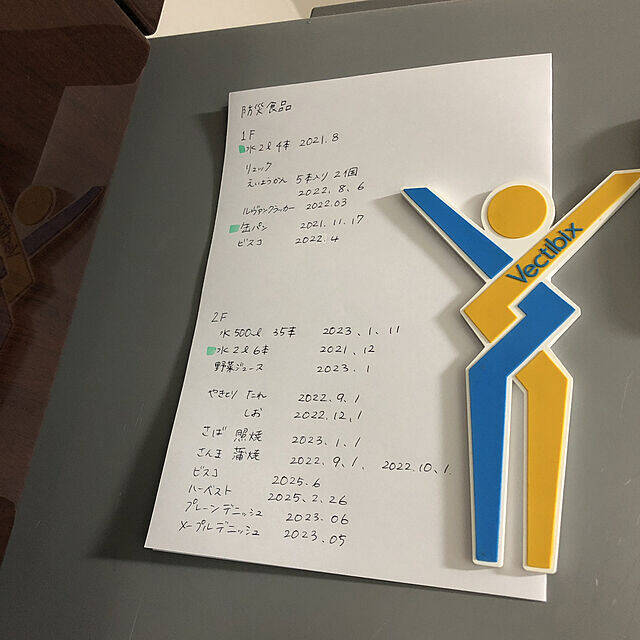 防災食品
1F
水2ℓ 4本 2021.8
リュック
えいようかん 5本入り 2個
2022.8.6
ルヴァンクラッカー 2022.03
缶パン 2021.11.17
ビスコ 2022.4
2F
水500mℓ 35本 2023.1.11
水2ℓ 6本 2021.12
野菜ジュース 2023.1
やきとり たれ 2022.9.1
しお 2022.12.1
さば 照焼 2023.1.1
さんま 蒲焼 2022.9.1、2022.10.1
ビスコ 2025.6
ハーベスト 2025.2.26
プレーンデニッシュ 2023.06
メープルデニッシュ 2023.05
Vectibix